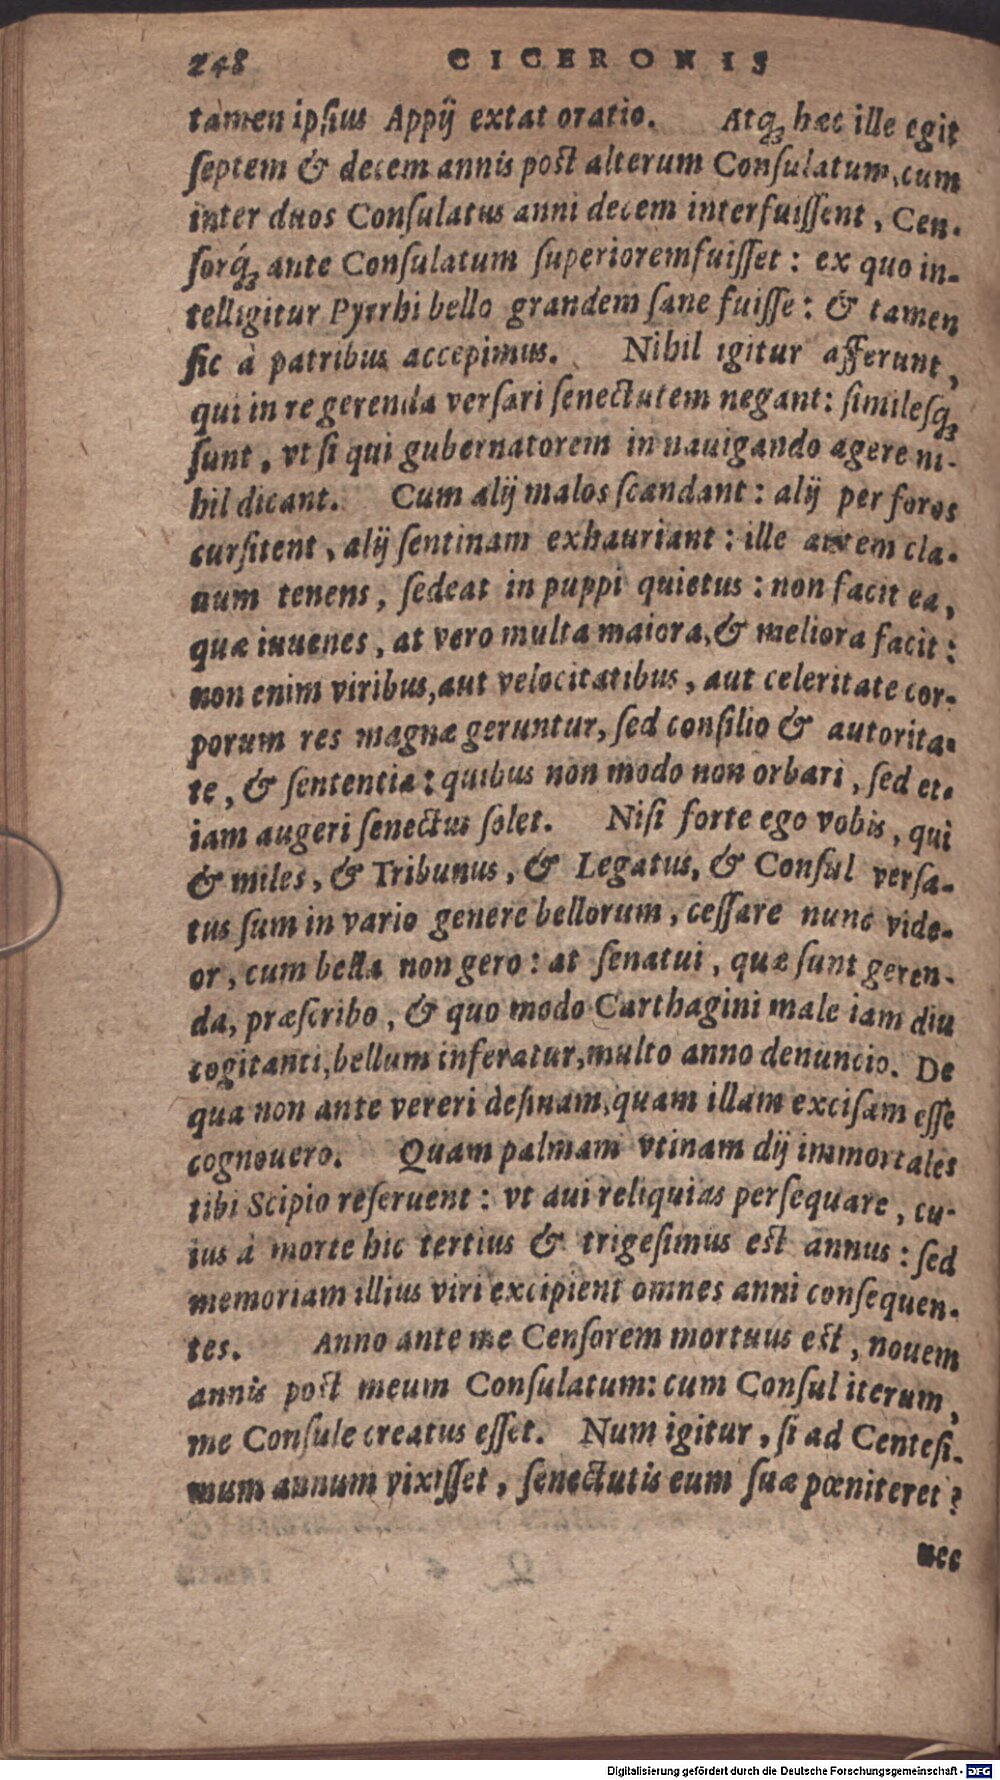 248 CICERONIS
tamen ipſius Appij extat oratio. Atq́ꝫ hæc ille egit
ſeptem & decem annis poſt alterum Conſulatum, cum
inter duos Conſulatus anni decem interfuiſſent, Cen-
ſorq́ꝫ ante Conſulatum ſuperiorem fuiſſet: ex quo in-
telligitur Pyrrhi bello grandem ſane fuiſſe: & tamen
ſic à patribus accepimus. Nihil igitur afferunt,
qui in re gerenda verſari ſenectutem negant: ſimilesq́ꝫ
ſunt, vt ſi qui gubernatorem in nauigando agere ni-
hil dicant. Cum alij malos ſcandant: alij per foros
curſitent, alij ſentinam exhauriant: ille autem cla-
uum tenens, ſedeat in puppi quietus: non facit ea,
quæ iuuenes, at vero multa maiora, & meliora facit:
non enim viribus, aut velocitatibus, aut celeritate cor-
porum res magnæ geruntur, ſed conſilio & autorita-
te, & ſententia: quibus non modo non orbari, ſed et-
iam augeri ſenectus ſolet. Niſi forte ego vobis, qui
& miles, & Tribunus, & Legatus, & Conſul verſa-
tus ſum in vario genere bellorum, ceſſare nunc vide-
or, cum bella non gero: at ſenatui, quæ ſunt geren-
da, præſcribo, & quo modo Carthagini male iam diu
cogitanti, bellum inferatur, multo anno denuncio. De
qua non ante vereri deſinam, quam illam exciſam eſſe
cognouero. Quam palmam vtinam dij immortales
tibi Scipio reſeruent: vt aui reliquias perſequare, cu-
ius à morte hic tertius & trigeſimus eſt annus: ſed
memoriam illius viri excipient omnes anni conſequen-
tes. Anno ante me Cenſorem mortuus eſt, nouem
annis poſt meum Conſulatum: cum Conſul iterum,
me Conſule creatus eſſet. Num igitur, ſi ad Centeſi-
mum annum vixiſſet, ſenectutis eum ſuæ pœniteret?
nec
Digitalisierung gefördert durch die Deutsche Forschungsgemeinschaft - DFG